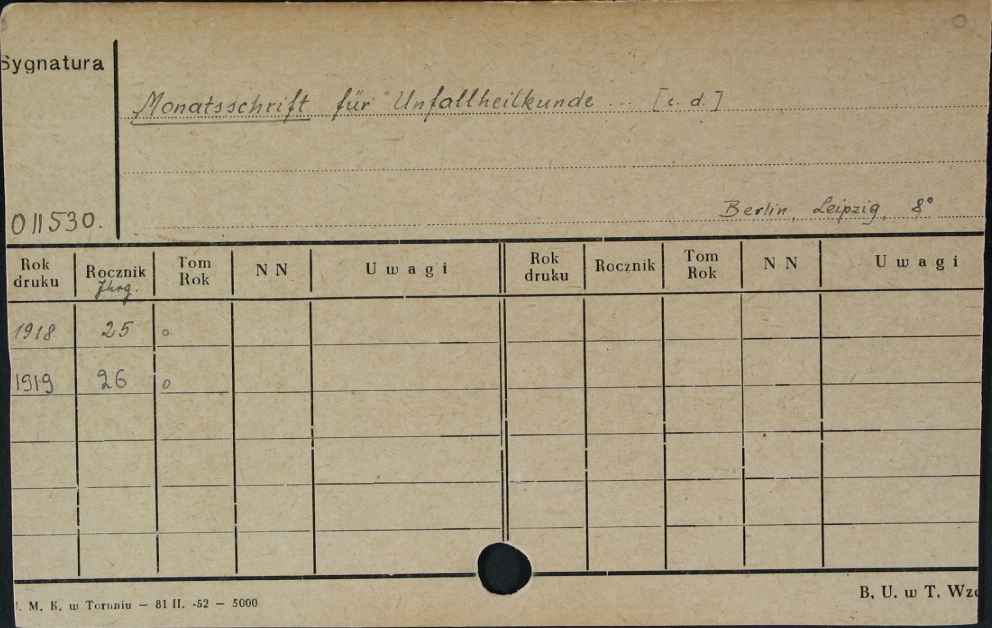 Sygnatura
Monatsschrift für Unfallheilkunde ... [c. d.]
Berlin, Leipzig, 8°
011530.
Rok druku Rocznik Jhrg. Tom Rok N N Uwagi Rok druku Rocznik Tom Rok N N Uwagi
1918 25 o
1919 26 o
M. K. w Toruniu — 81 II. -52 — 5000
B. U. w T. Wzo